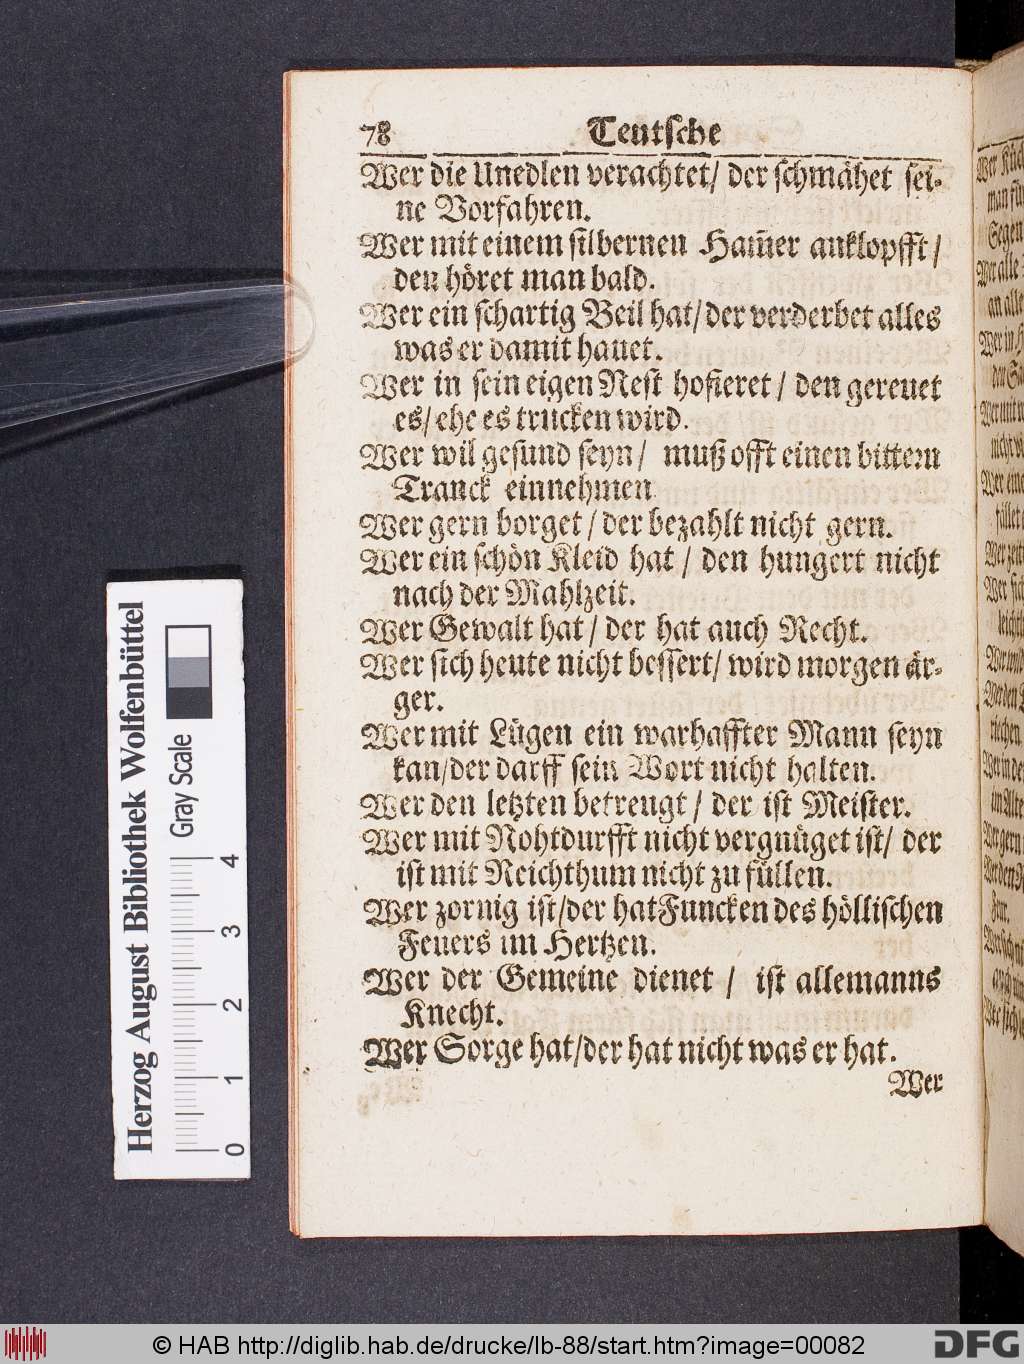 78 Teutsche
Wer die Unedlen verachtet/ der schmähet sei-
ne Vorfahren.
Wer mit einem silbernen Ham̄er anklopfft /
den höret man bald.
Wer ein schartig Beil hat/ der verderbet alles
was er damit hauet.
Wer in sein eigen Nest hofieret / den gereuet
es/ ehe es trucken wird.
Wer wil gesund seyn / muß offt einen bittern
Tranck einnehmen
Wer gern borget / der bezahlt nicht gern.
Wer ein schön Kleid hat / den hungert nicht
nach der Mahlzeit.
Wer Gewalt hat / der hat auch Recht.
Wer sich heute nicht bessert/ wird morgen är-
ger.
Wer mit Lügen ein warhaffter Mann seyn
kan/der darff sein Wort nicht halten.
Wer den letzten betreugt / der ist Meister.
Wer mit Nohtdurfft nicht vergnüget ist/ der
ist mit Reichthum nicht zu füllen.
Wer zornig ist/der hat Funcken des höllischen
Feuers im Hertzen.
Wer der Gemeine dienet / ist allemanns
Knecht.
Wer Sorge hat/der hat nicht was er hat.
Wer
Herzog August Bibliothek Wolfenbüttel
Gray Scale
0 1 2 3 4
© HAB http://diglib.hab.de/drucke/lb-88/start.htm?image=00082
DFG